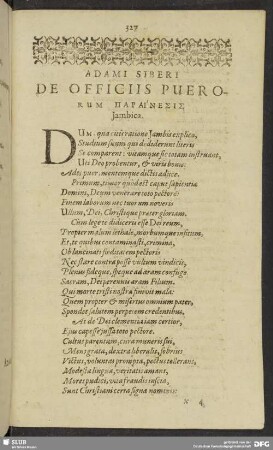 327
ADAMI SIBERI
DE OFFICIIS PUERO-
RUM ΠΑΡΑΙΝΕΣΙΣ
Jambica.
DUM, qua cuiq; ratione Jambis explico,
Studium suum qui dediderunt literis
Se comparent: vitamque sic totam instruant,
Uti Deo probentur, & viris bonis:
Ades puer, mentemque dictis adjice.
Primum, timor quod est caput sapientiæ
Domini, Deum venerare toto pectore:
Finem laborum nec tuorum noveris
Ullum, Dei, Christique præter gloriam.
Cum lege te didiceris esse Dei reum,
Propter malum letale, morbumque insitum,
Et, te quibus contaminasti, crimina,
Ob lancinati sordidum pectoris
Nec stare contra posse vultum vindicis,
Plenus fideque, speque ad aram confuge
Sacram, Dei parentis Filium,
Qui morte tristi nostra finivit mala:
Quem propter & misertus omnium pater,
Spondet salutem perpetem credentibus,
At de Dei clementia jam certior,
Ejus capesse jussa toto pectore.
Cultus parentum, cura muneris sui,
Mens grata, dextra liberalis, sobrius
Victus, voluntas prompta, pectus tolerans,
Modesta lingua, veritatis amans,
Mores pudici, vita fraudis inscia,
Sunt Christiani certa signa nominis:
X 4
SLUB
DFG